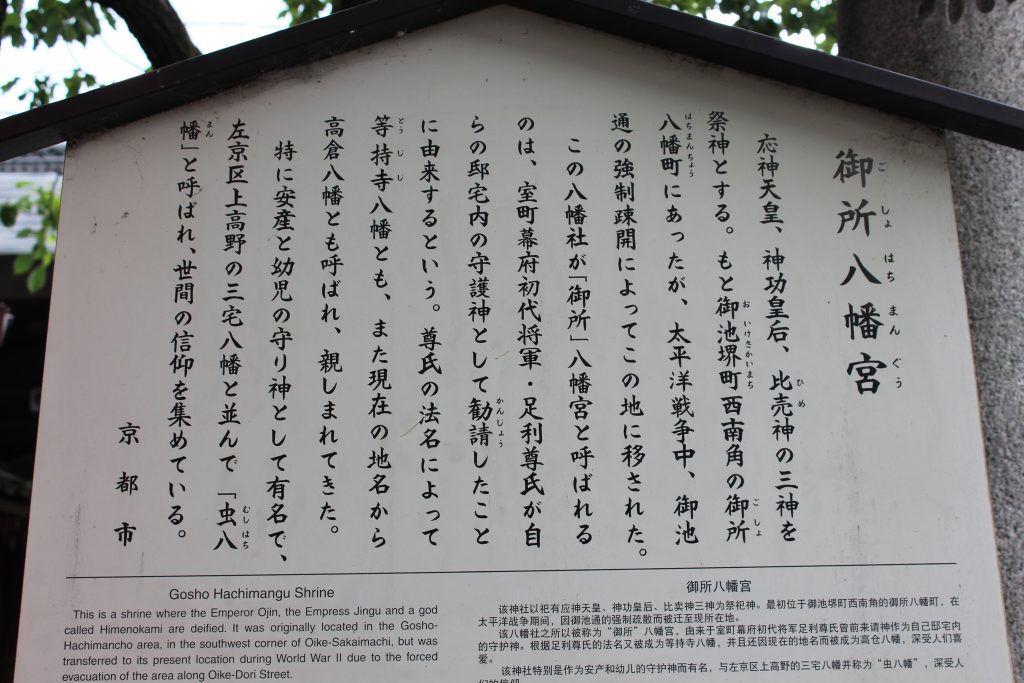 御所八幡宮
ごしょはちまんぐう
応神天皇、神功皇后、比売神の三神を
ひめ
祭神とする。もと御池堺町西南角の御所
おいけさかいまち
ごしょ
八幡町にあったが、太平洋戦争中、御池
はちまんちょう
通の強制疎開によってこの地に移された。
この八幡社が「御所」八幡宮と呼ばれる
のは、室町幕府初代将軍・足利尊氏が自
らの邸宅内の守護神として勧請したこと
かんじょう
に由来するという。尊氏の法名によって
等持寺八幡とも、また現在の地名から
とうじじ
高倉八幡とも呼ばれ、親しまれてきた。
特に安産と幼児の守り神として有名で、
左京区上高野の三宅八幡と並んで「虫八
むしはち
幡」と呼ばれ、世間の信仰を集めている。
まん
京都市
Gosho Hachimangu Shrine
This is a shrine where the Emperor Ojin, the Empress Jingu and a god
called Himenokami are deified. It was originally located in the Gosho-
Hachimancho area, in the southwest corner of Oike-Sakaimachi, but was
transferred to its present location during World War II due to the forced
evacuation of the area along Oike-Dori Street.
御所八幡宮
该神社以祀有应神天皇、神功皇后、比卖神三神为祭祀神。最初位于御池堺町西南角的御所八幡町，在
太平洋战争期间，因御池通的强制疏散而被迁至现所在地。
该八幡社之所以被称为“御所”八幡宫，由来于室町幕府初代将军足利尊氏曾前来请神作为自己邸宅内
的守护神。根据足利尊氏的法名又被成为等持寺八幡，并且还因现在的地名而被成为高仓八幡，深受人们喜
爱。
该神社特别是作为安产和幼儿的守护神而有名，与左京区上高野的三宅八幡并称为“虫八幡”，深受人
们的信仰